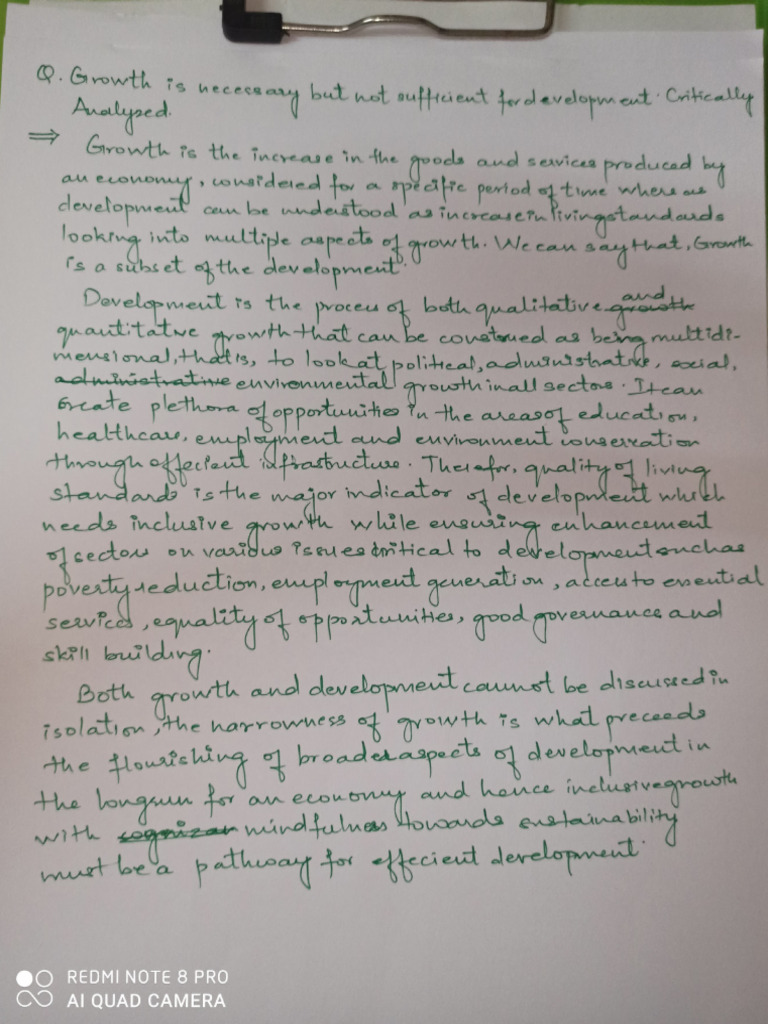 Q. Growth is necessary but not sufficient for development. Critically
Analysed.
⇒ Growth is the increase in the goods and services produced by
an economy, considered for a specific period of time where as
development can be understood as increase in living standards
looking into multiple aspects of growth. We can say that, Growth
is a subset of the development.
Development is the process of both qualitative growth and
quantitative growth that can be construed as being multidi-
mensional, that is, to look at political, administrative, social,
administrative environmental growth in all sectors. It can
create plethora of opportunities in the areas of education,
healthcare, employment and environment conservation
through effecient infrastructure. Therefor, quality of living
standards is the major indicator of development which
needs inclusive growth while ensuring enhancement
of sectors on various issues critical to development such as
poverty reduction, employment generation, access to essential
services, equality of opportunities, good governance and
skill building.
Both growth and development cannot be discussed in
isolation, the narrowness of growth is what preceeds
the flourishing of broader aspects of development in
the longrun for an economy and hence inclusive growth
with mindfulness towards sustainability
must be a pathway for effecient development.
REDMI NOTE 8 PRO
AI QUAD CAMERA